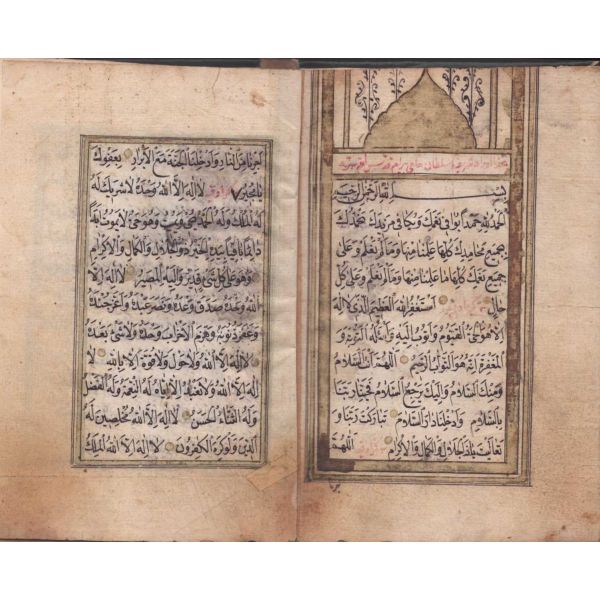 هذا اوراد شريف سلطان حاجى بيرام قدس
بسم الله الرحمن الرحيم
الحمد لله حمدا يوافى نعمك ويكافى مزيدك نحمدك
بجميع محامدك كلها ما علمنا منها وما لم نعلم وعلى
جميع نعمك كلها ما علمنا منها وما لم نعلم وعلى كل
حال استغفر الله العظيم الذى لا اله
الا هو الحى القيوم واتوب اليه واسئله التوبة و
المغفرة انه هو التواب الرحيم اللهم انت السلام
ومنك السلام واليك يرجع السلام فحينا ربنا
بالسلام وادخلنا دار السلام تباركت ربنا و
تعاليت ياذا الجلال والكمال والاكرام اللهم
اجرنا من النار وادخلنا الجنة مع الابرار بعفوك
يا مجير لا اله الا الله وحده لا شريك له
له الملك وله الحمد يحيى ويميت وهو حى لا يموت ابدا
دائما باقيا بيده الخير ذو الجلال والكمال والاكرام
وهو على كل شئ قدير واليه المصير لا اله الا
الله وحده صدق وعده ونصر عبده واعز جنده
وهزم الاحزاب وحده ولا شئ بعده
لا اله الا الله ولا حول ولا قوة الا بالله لا
اله الا الله ولا نعبد الا اياه له النعمة وله الفضل
وله الثناء الحسن لا اله الا الله مخلصين له
الدين ولو كره الكفرون لا اله الا الله الملك